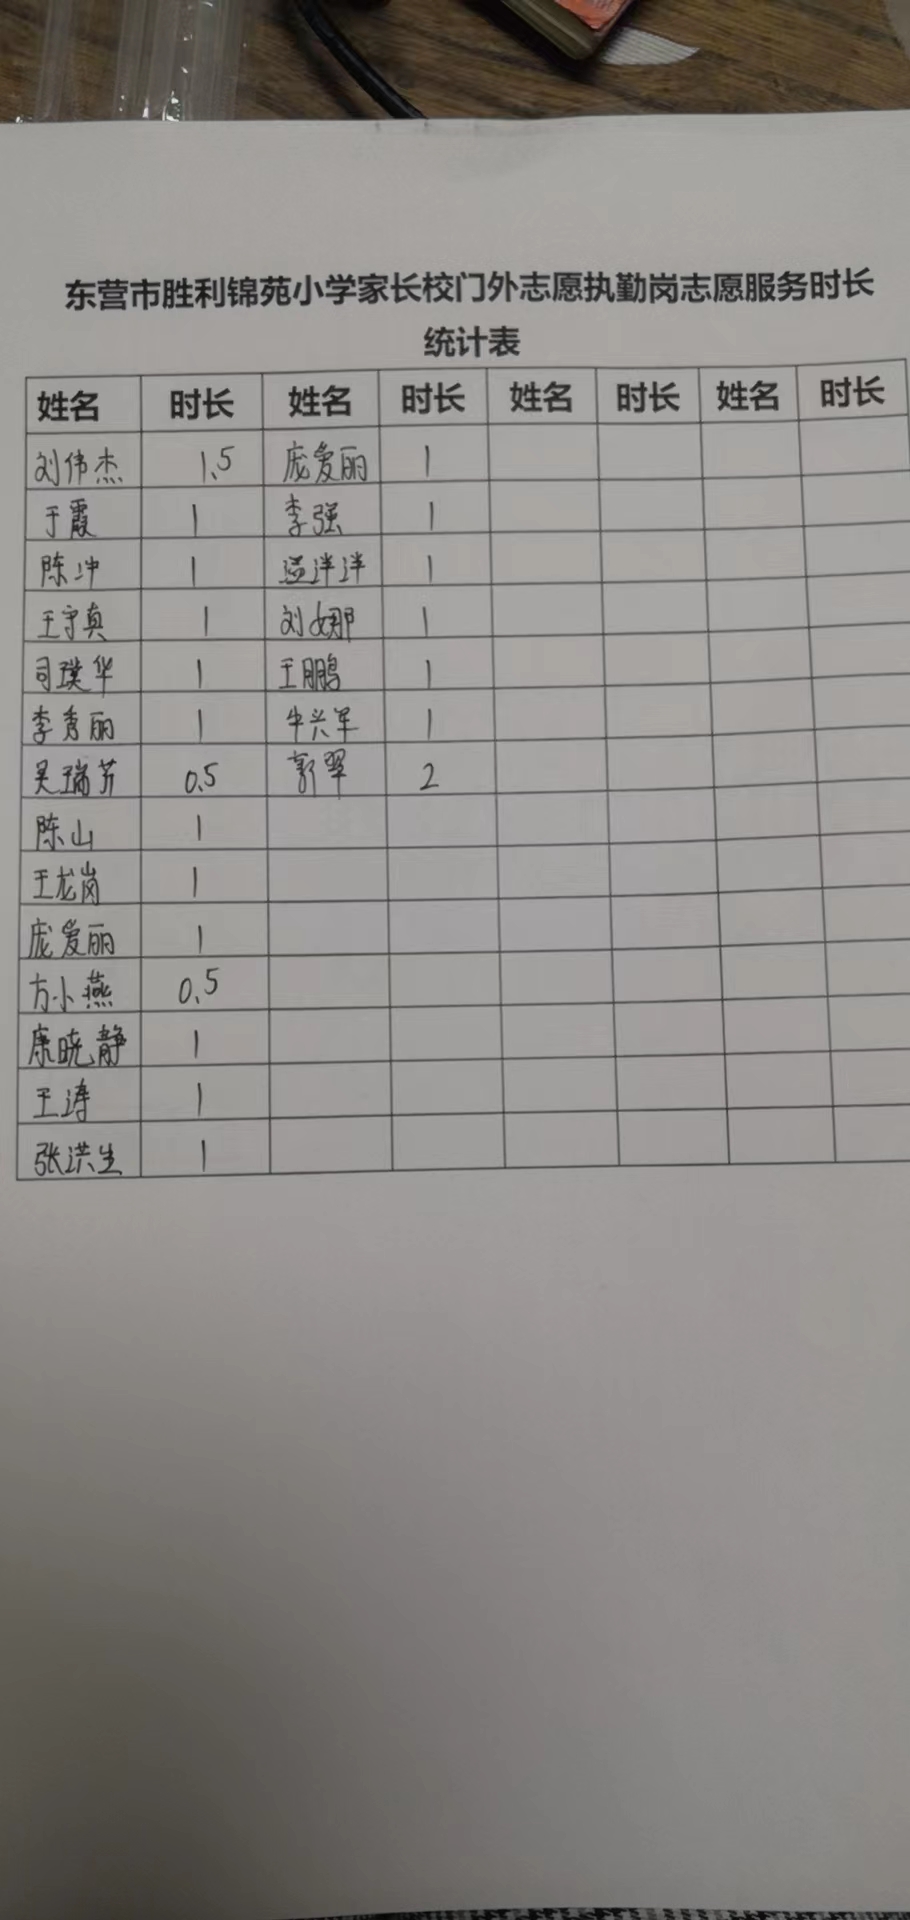 东营市胜利锦苑小学家长校门外志愿执勤岗志愿服务时长
统计表
姓名 时长 姓名 时长 姓名 时长 姓名 时长
刘伟杰 1.5 庞爱丽 1
于霞 1 李强 1
陈冲 1 洋洋 1
王守真 1 刘娜 1
司璞华 1 王鹏 1
李秀丽 1 牛兴军 1
吴瑞芳 0.5 郭翠 2
陈山 1
王龙岗 1
庞爱丽 1
方小燕 0.5
康晓静 1
王涛 1
张洪生 1